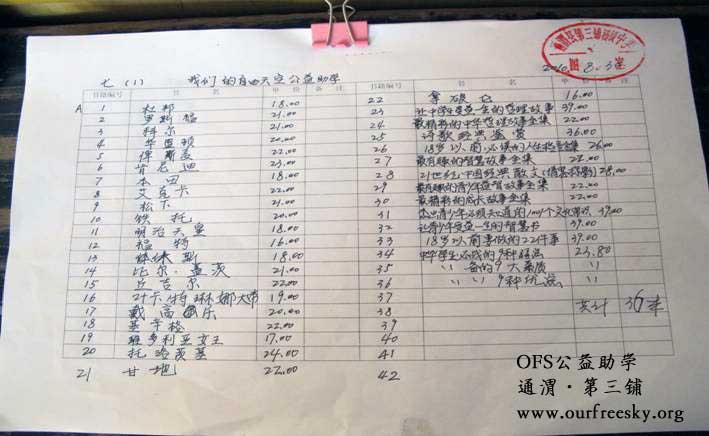 七（1） 我们的自由天空公益助学
2010. 8. 3
书籍编号 书 名 单价 备注 书籍编号 书 名 单价 备注
A 1 杜邦 18.00
2 罗斯福 21.00
3 科尔 21.00
4 华盛顿 20.00
5 俾斯麦 22.00
6 肯尼迪 23.00
7 本田 18.00
8 艾克卡 22.00
9 松下 21.00
10 铁托 20.00
11 明治天皇 18.00
12 福特 16.00
13 林肯 18.00
14 比尔·盖茨 21.00
15 丘吉尔 22.00
16 叶卡特琳娜大帝 19.00
17 戴高乐 20.00
18 基辛格 22.00
19 维多利亚女王 17.00
20 托洛茨基 24.00
21 甘地 22.00
22 拿破仑 16.00
23 让中学生受益一生的哲理故事 39.00
24 最精彩的中华哲理故事全集 22.00
25 诗歌经典鉴赏 36.00
26 18岁以前必读的 全集 26.00
27 最有趣的智慧故事全集 22.00
28 21世纪中国经典散文 28.00
29 最有趣的青少年益智故事全集 22.00
30 最精彩的成长故事全集 22.00
31 青少年必须知道的1001个文化常识 39.00
32 让青少年受益一生的智慧书 39.00
33 18岁以前要做的22件事 39.00
34 中学生必戒的9种弱点 23.80
35 〃 备的9大素质 〃
36 〃 〃 9种优点 〃
37
38 共计 36本
39
40
41
42
OFS公益助学
通渭·第三铺
www.ourfreesky.org